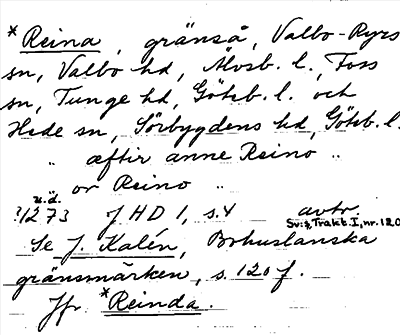 *Reina, gränså, Valbo-Ryrs
sn, Valbo hd, Älvsb. l., Foss
sn, Tunge hd, Göteb. l. och
Hede sn, Sörbygdens hd, Göteb. l.
„ æftir anne Reino „
„ or Reino „
u.å.
?1273 JHD 1, s.4 avtr.
Sv:s Trakt. I, nr. 120
Se J. Kalén, Bohuslänska
gränsmärken, s. 120 f.
Jfr *Reinda.